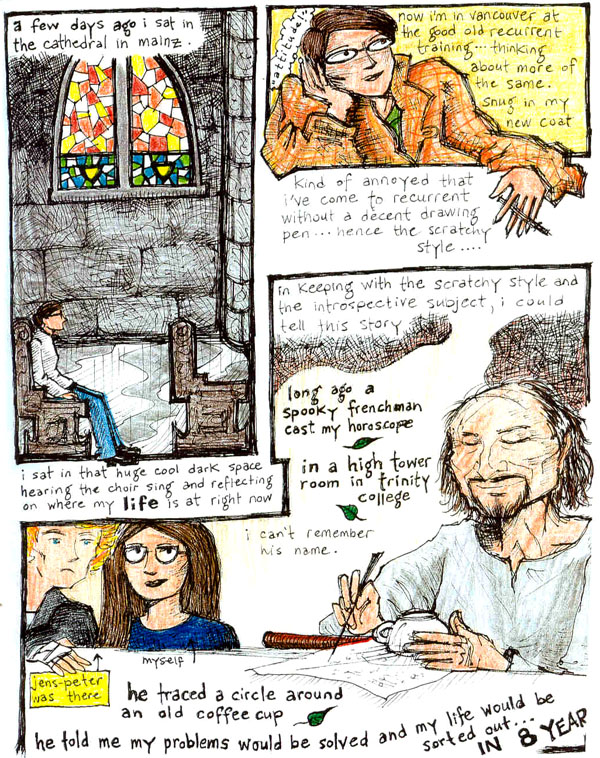 a few days ago i sat in
the cathedral in mainz.
attitude!
now i'm in vancouver at
the good old recurrent
training... thinking
about more of
the same.
snug in my
new coat
kind of annoyed that
i've come to recurrent
without a decent drawing
pen... hence the scratchy
style....
i sat in that huge cool dark space
hearing the choir sing and reflecting
on where my life is at right now
in keeping with the scratchy style and
the introspective subject, i could
tell this story
long ago a
spooky frenchman
cast my horoscope
in a high tower
room in trinity
college
i can't remember
his name.
jens-peter
was there
myself
he traced a circle around
an old coffee cup
he told me my problems would be solved and my life would be
sorted out...
IN 8 YEAR